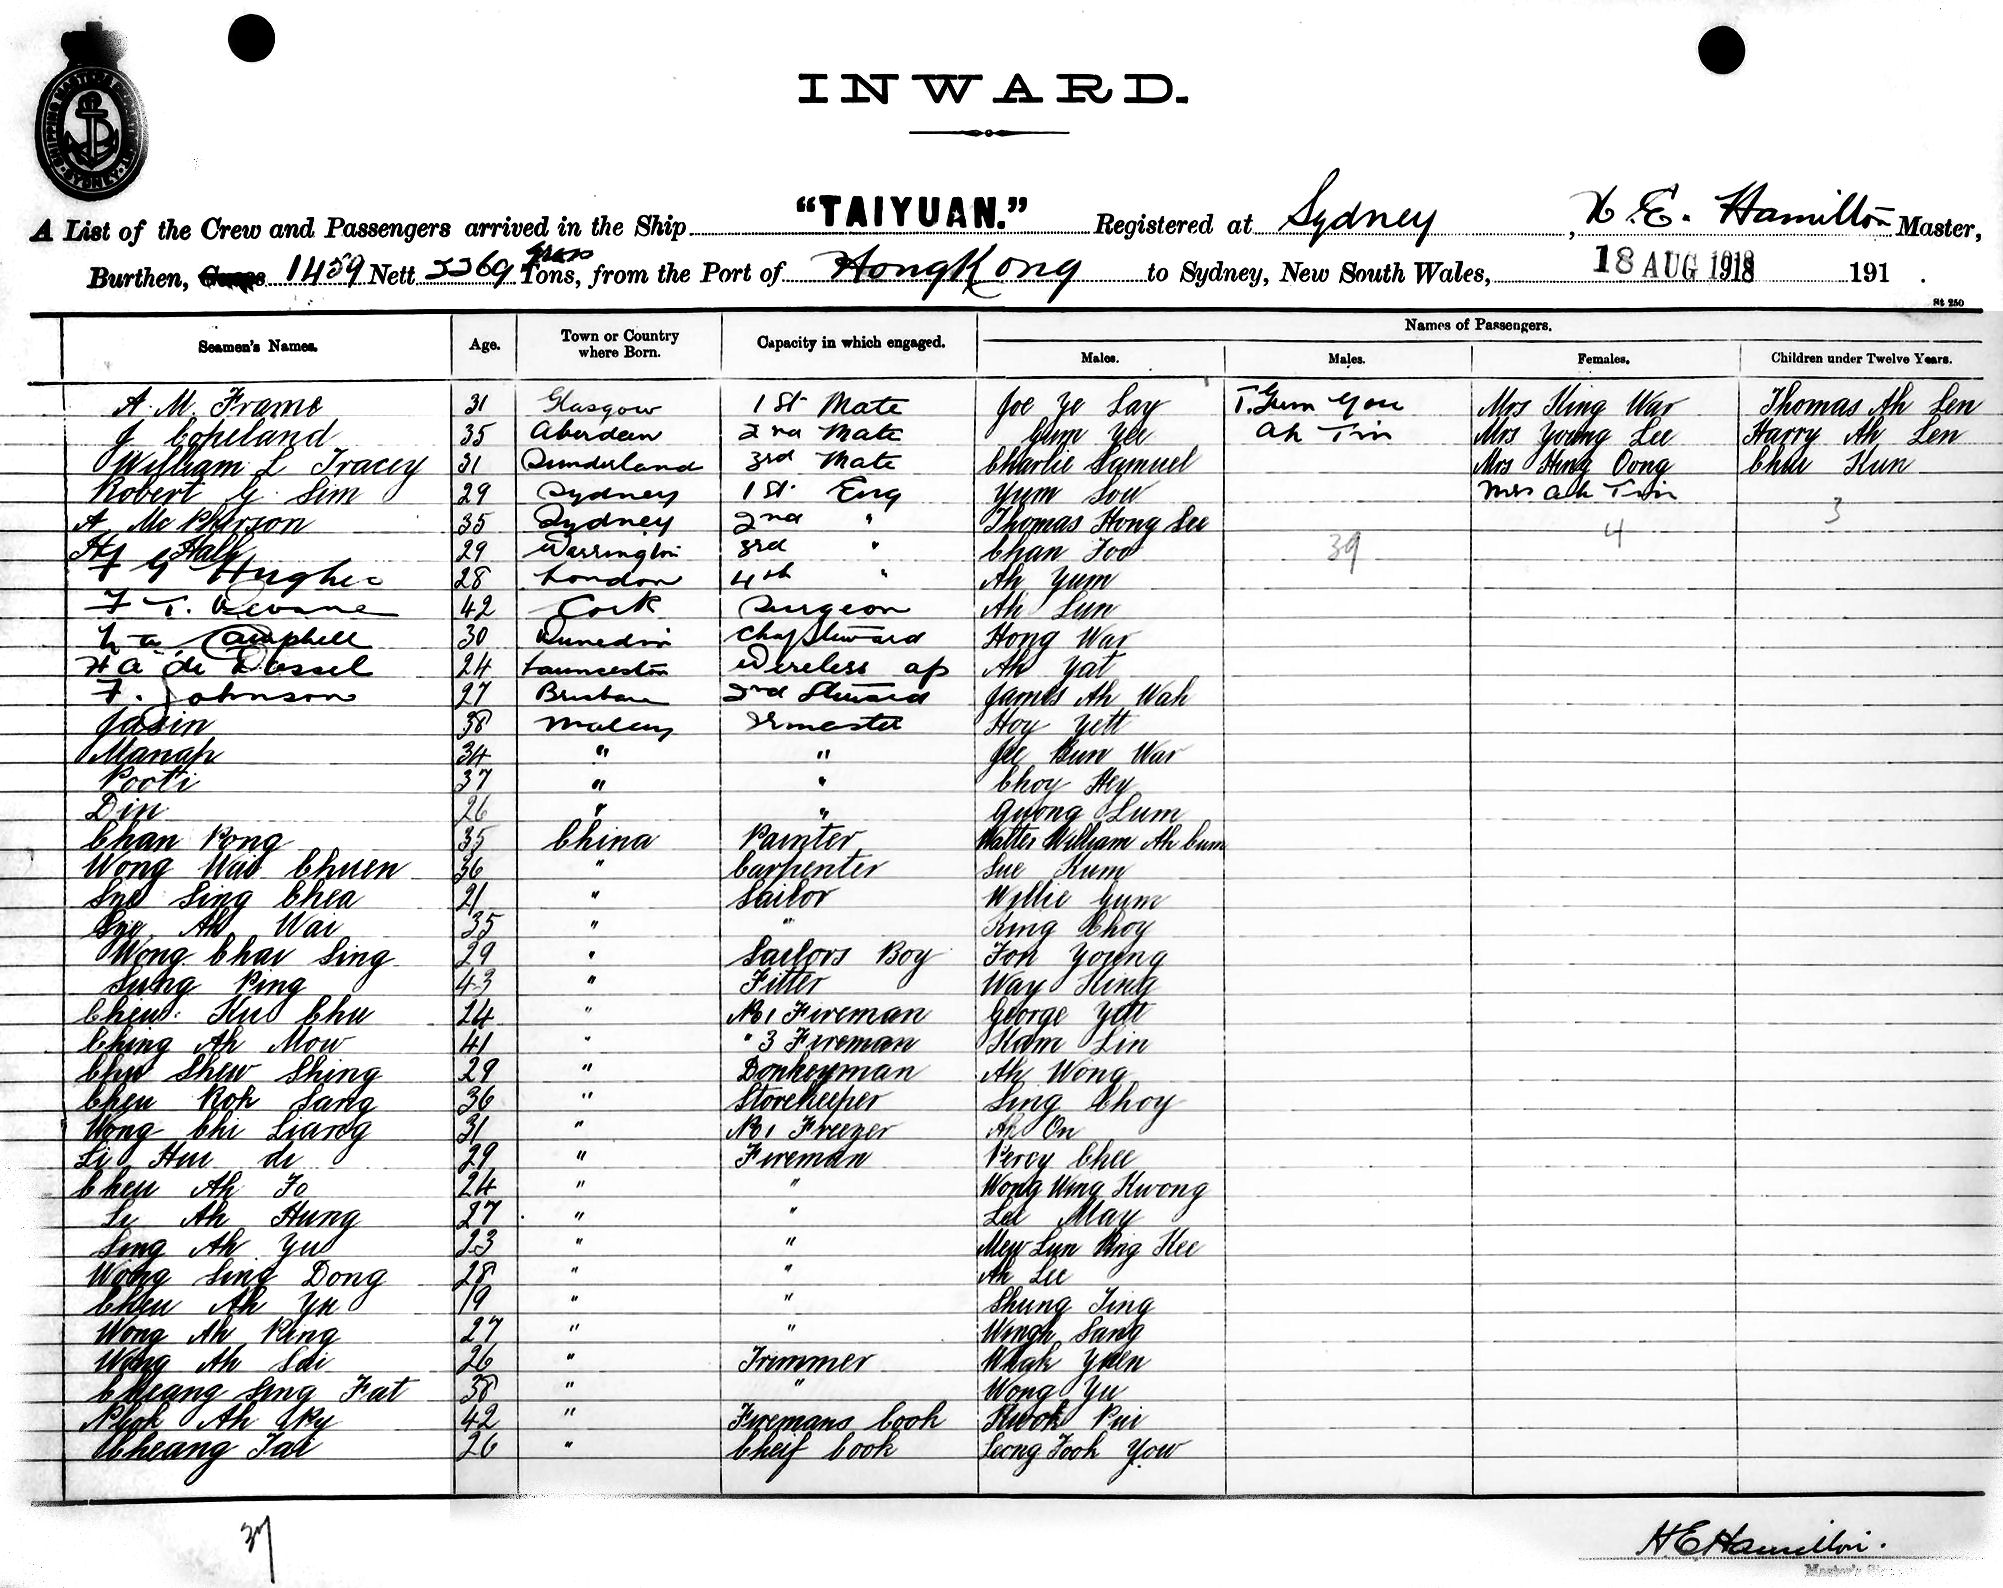 SHIPPING MASTER'S DEPARTMENT SYDNEY
INWARD.
A List of the Crew and Passengers arrived in the Ship "TAIYUAN." Registered at Sydney, H. E. Hamilton Master,
Burthen, 1459 Nett 2269 Gross Tons, from the Port of HongKong to Sydney, New South Wales, 18 AUG 1918 191 .
St 250
Seamen's Names. Age. Town or Country where Born. Capacity in which engaged. Names of Passengers.
Males. Males. Females. Children under Twelve Years.
A. M. Frame 31 Glasgow 1st Mate Joe Ye Lay T. Gum You Mrs King War Thomas Ah Len
J Copeland 35 Aberdeen 2nd Mate Gum Yee Ah Tin Mrs Young Lee Harry Ah Len
William L Tracey 31 Sunderland 3rd Mate Charlie Samuel Mrs Hing Oong Chu Kun
Robert G. Sim 29 Sydney 1st Eng Yum Sou Mrs Ah Tin
A McPherson 35 Sydney 2nd " Thomas Hong Lee 3
H Hall 29 Warrington 3rd " Chan Foo 39 4
F G Hughes 28 London 4th " Ah Yum
F T. Devane 42 Cork Surgeon Ah Lun
Campbell 30 Dunedin Chf Steward Hong War
H A de Dassel 24 Launceston Wireless op Ah Yat
F. Johnson 27 Brisbane 2nd Steward James Ah Wah
Jasin 38 Malay Hoy Yett
Manap 34 " " Jee Bun War
Pooti 37 " " Choy Hey
Din 26 " " Quong Lum
Chan Pong 35 China Painter Walter William Ah Cum
Wong Wai Chuen 36 " Carpenter Sue Kum
Sue Sing Chea 21 " Sailor Willie Gum
Sye Ah Wai 35 " King Choy
Wong Chai Sing 29 " Sailors Boy Fon Young
Sung Ping 43 " Fitter Way King
Cheu Ku Chu 24 " No 1 Fireman George Yett
Ching Ah Mow 41 " " 3 Fireman Kam Lin
Chu Shew Shing 29 " Donkeyman Ah Wong
Cheu Kok Sang 36 " Storekeeper Sing Choy
Wong Chi Liang 31 " No 1 Freezer Ah On
Li Hui di 29 " Fireman Percy Chee
Cheu Ah Fo 24 " " Wong Wing Kwong
Li Ah Hung 27 " " Lee May
Sing Ah Yu 23 " " Mew Lun King Kee
Wong Sing Dong 28 " " Ah Lee
Cheu Ah Yu 19 " " Shung Ting
Wong Ah Ping 27 " " Wingh Sang
Wong Ah Sai 26 " Trimmer Wigh Yuen
Cheang Sing Fat 38 " " Wong Yu
Ah 42 " Firemans Cook Kwok Pui
Cheang Tai 26 " Cheif Cook Leong Fook Yow
37
H E Hamilton.